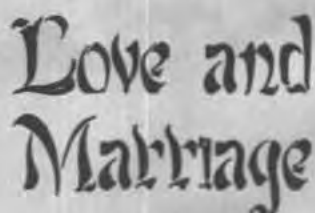 Love and
Marriage